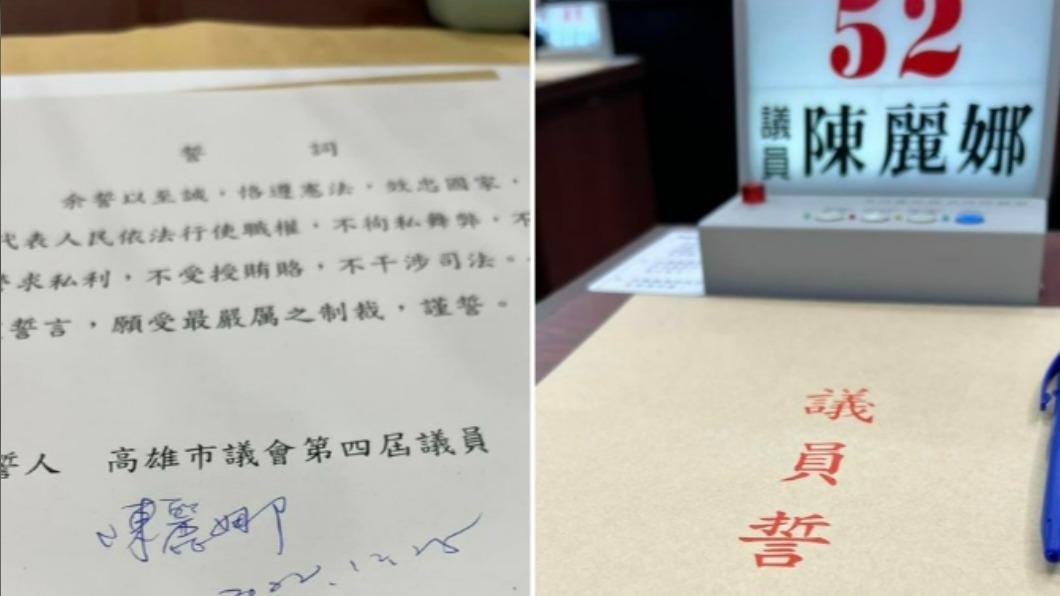 誓 詞
余誓以至誠，恪遵憲法，效忠國家，
代表人民依法行使職權，不徇私舞弊，不
求私利，不受授賄賂，不干涉司法。
誓言，願受最嚴厲之制裁，謹誓。
誓人 高雄市議會第四屆議員
陳麗娜
2022.12.25
52
議員 陳麗娜
議
員
誓